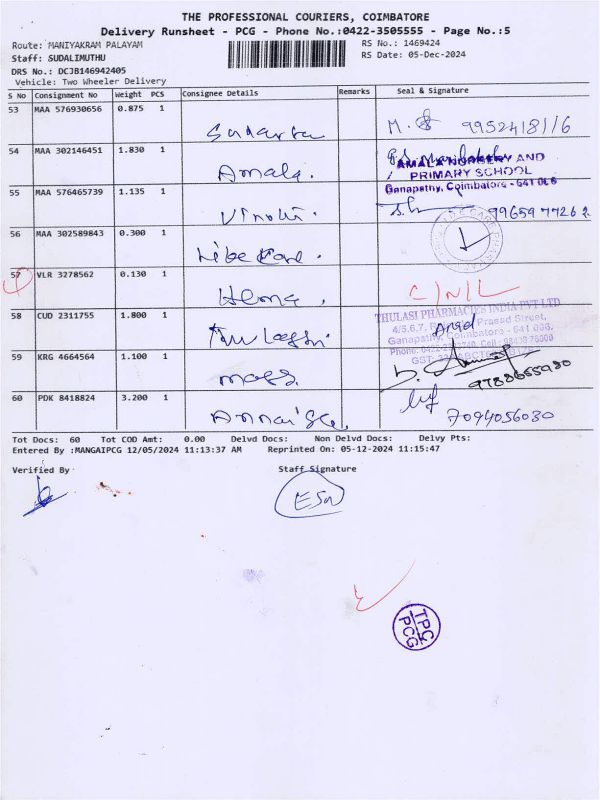 THE PROFESSIONAL COURIERS, COIMBATORE
Delivery Runsheet - PCG - Phone No.:0422-3505555 - Page No.:5
Route: MANIYAKRAM PALAYAM
RS No.: 1469424
Staff: SUDALIMUTHU
RS Date: 05-Dec-2024
DRS No.: DCJB146942405
Vehicle: Two Wheeler Delivery
S No Consignment No Weight PCS Consignee Details Remarks Seal & Signature
53 MAA 576930656 0.875 1
M. 9952418116
54 MAA 302146451 1.830 1
Amala.
AMALA NURSERY AND
PRIMARY SCHOOL
Ganapathy, Coimbatore - 641 006
55 MAA 576465739 1.135 1
Vinoth. 9965977262
56 MAA 302589843 0.300 1
57 VLR 3278562 0.130 1
Hema. C/N/L
58 CUD 2311755 1.800 1
THULASI PHARMACIES INDIA PVT LTD
Ganapathy, Coimbatore - 641 006.
59 KRG 4664564 1.100 1
9788655980
60 PDK 8418824 3.200 1
7094056080
Tot Docs: 60 Tot COD Amt: 0.00 Delvd Docs: Non Delvd Docs: Delvy Pts:
Entered By :MANGAIPCG 12/05/2024 11:13:37 AM Reprinted On: 05-12-2024 11:15:47
Verified By Staff Signature
ESU
TPC
PCG